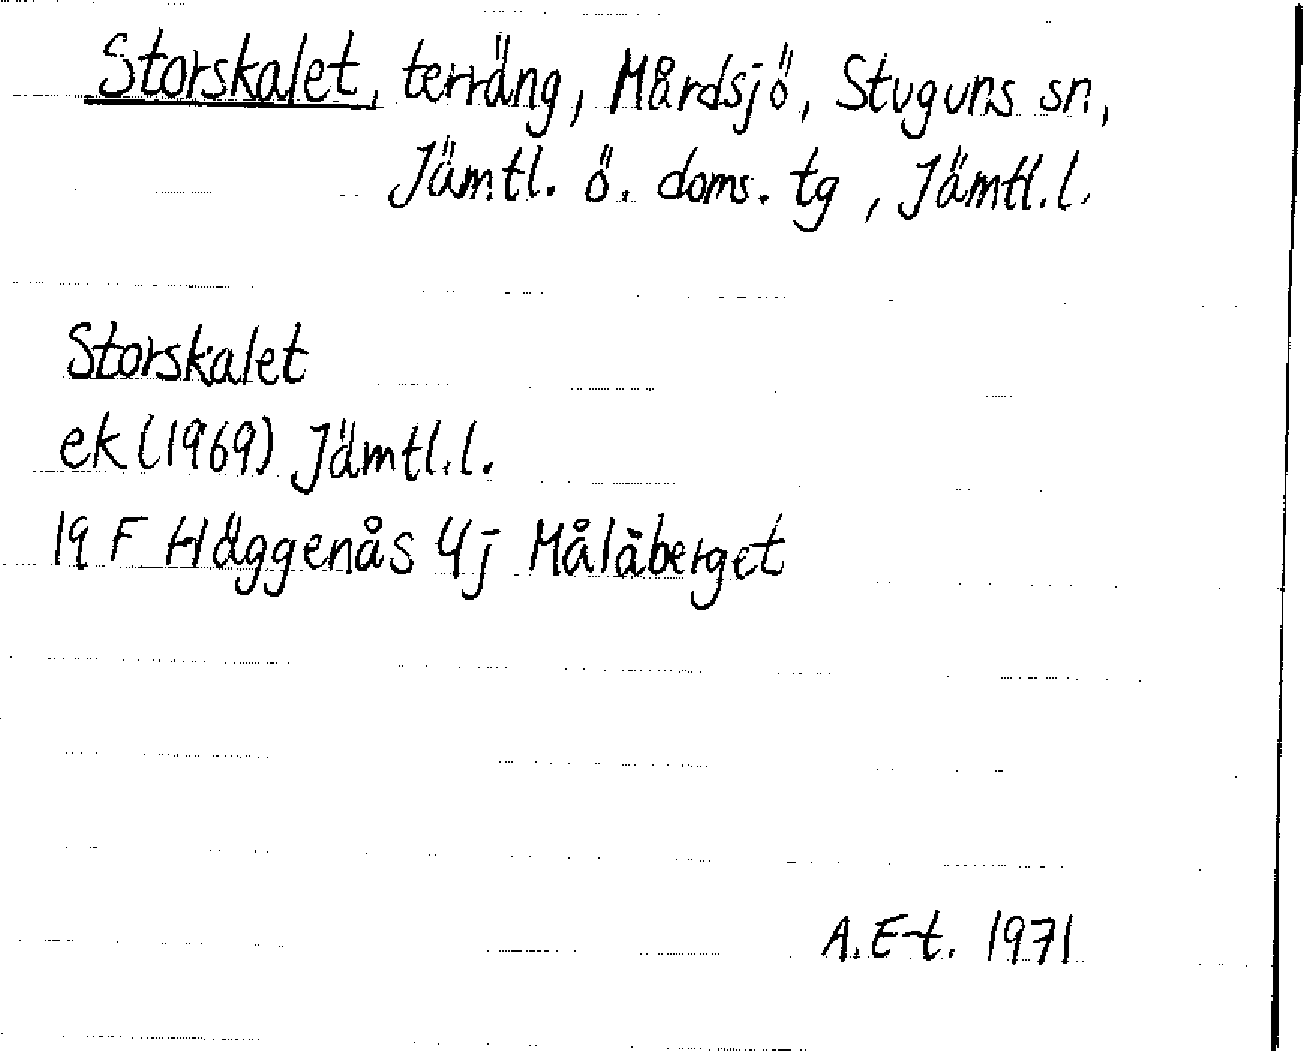 Storskalet, terräng, Mårdsjö, Stuguns sn,
Jämtl. ö. doms. tg, Jämtl.l.
Storskalet
ek (1969) Jämtl.l.
19 F Häggenås 4j Målåberget
A.E-t. 1971